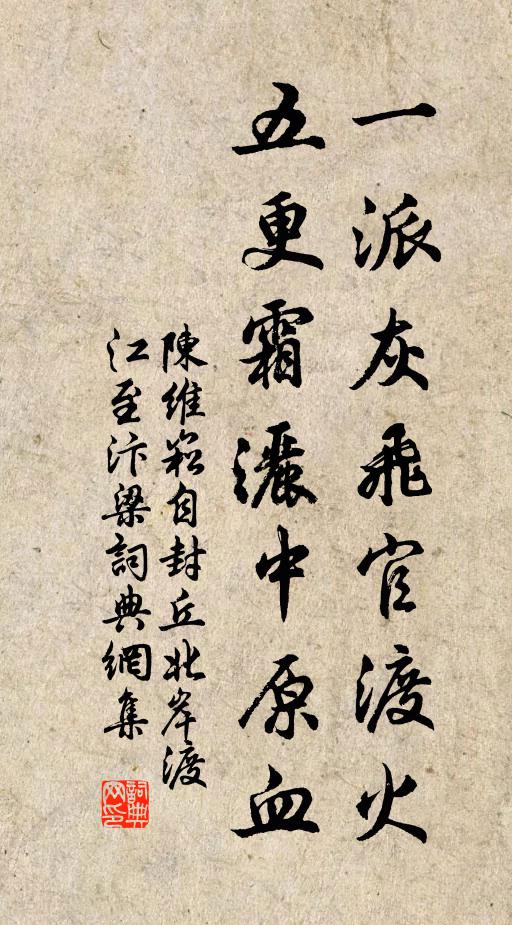 一派灰飛官渡火
五更霜灑中原血
陳維崧自封丘北岸渡
江至汴梁詞典網集
詞典網印